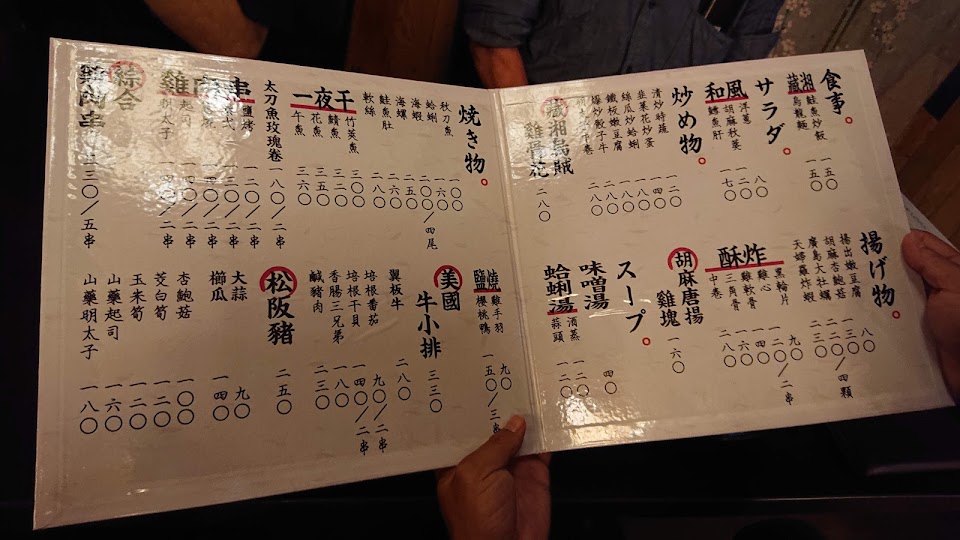 食事。
鮭魚炒飯 一五〇
烏龍麵 一五〇
サラダ。
和風
洋蔥 八〇
胡麻秋葵 一二〇
鱈魚肝 一七〇
炒め物。
清炒時蔬 一二〇
韭菜花炒蛋 一四〇
絲瓜炒蛤蜊 一八〇
鐵板嫩豆腐 一八〇
爆炒骰子牛 二八〇
烏賊
二八〇
揚げ物。
揚出嫩豆腐 八〇
胡麻杏鮑菇 一三〇
廣島大牡蠣 二二〇/四顆
天婦羅炸蝦 三二〇
酥炸
黑輪片 九〇
雞心 一二〇/二串
雞軟骨 一四〇
三角骨 一六〇
中卷 二八〇
胡麻唐揚
雞塊 一六〇
スープ。
味噌湯 四〇
蛤蜊湯
酒蒸 一二〇
蒜頭 一二〇
焼き物。
秋刀魚 一〇〇
蛤蜊 一六〇
海蝦 二〇〇/四尾
海螺 二五〇
鮭魚肚 二六〇
軟絲 二八〇
一夜干
竹莢魚 三〇〇
鯖魚 三二〇
花魚 三六〇
午魚 三六〇
太刀魚玫瑰卷 一八〇/二串
串
鹽烤
雞
明太子
綜合
雞肉串 二三〇/五串
鹽燒
雞手羽 九〇
櫻桃鴨 一五〇/三串
美國
牛小排 三三〇
翼板牛 二八〇
培根番茄 九〇/二串
培根干貝 一四〇/二串
香腸三兄弟 一八〇
鹹豬肉 二三〇
松阪豬 二五〇
大蒜 九〇
櫛瓜 一四〇
杏鮑菇 一〇〇
茭白筍 一二〇
玉米筍 一二〇
山藥起司 一六〇
山藥明太子 一八〇